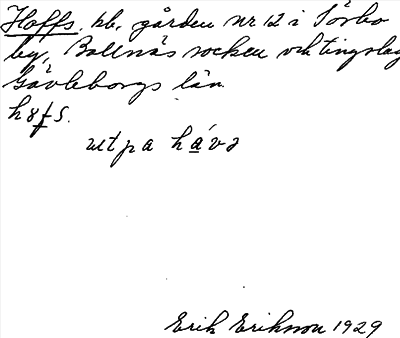 Hoffs, kb. gården nr 12 i Sörbo
by, Bollnäs socken och tingslag
Gävleborgs län.
utpa
Erik Eriksson 1929